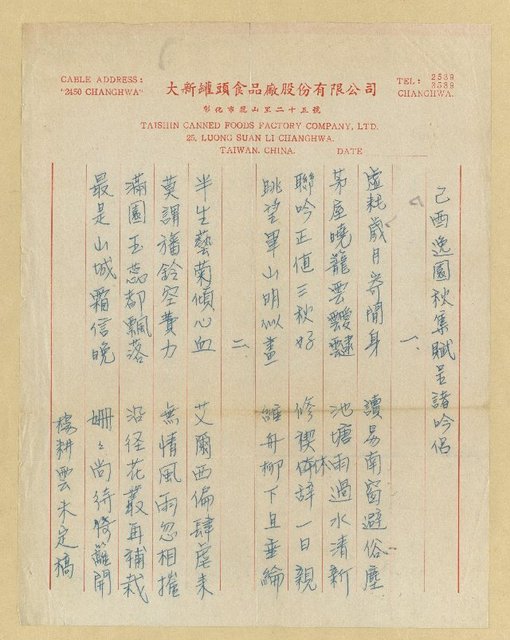 CABLE ADDRESS:
"2450 CHANGHWA"
大新罐頭食品廠股份有限公司
彰化市龍山里二十五號
TAISHIN CANNED FOODS FACTORY COMPANY, LTD.
25, LUONG SUAN LI CHANGHWA.
TAIWAN, CHINA. DATE
TEL: 2539
3539
CHANGHWA.
己酉逸園秋集賦呈諸吟侶
一、
虛耗歲月等閒身 讀易南窗避俗塵
茅屋曉籠雲靉靆 池塘雨過水清新
聯吟正值三秋好 修禊休辞一日親
眺望畢山明似畫 維舟柳下且垂綸
二、
半生藝菊傾心血 艾爾西偏肆虐來
莫謂旛鈴空費力 無情風雨忽相摧
滿園玉蕊都飄落 沿径花叢再補栽
最是山城霜信晚 姍々尚待修籬開
楊耕雲未定稿